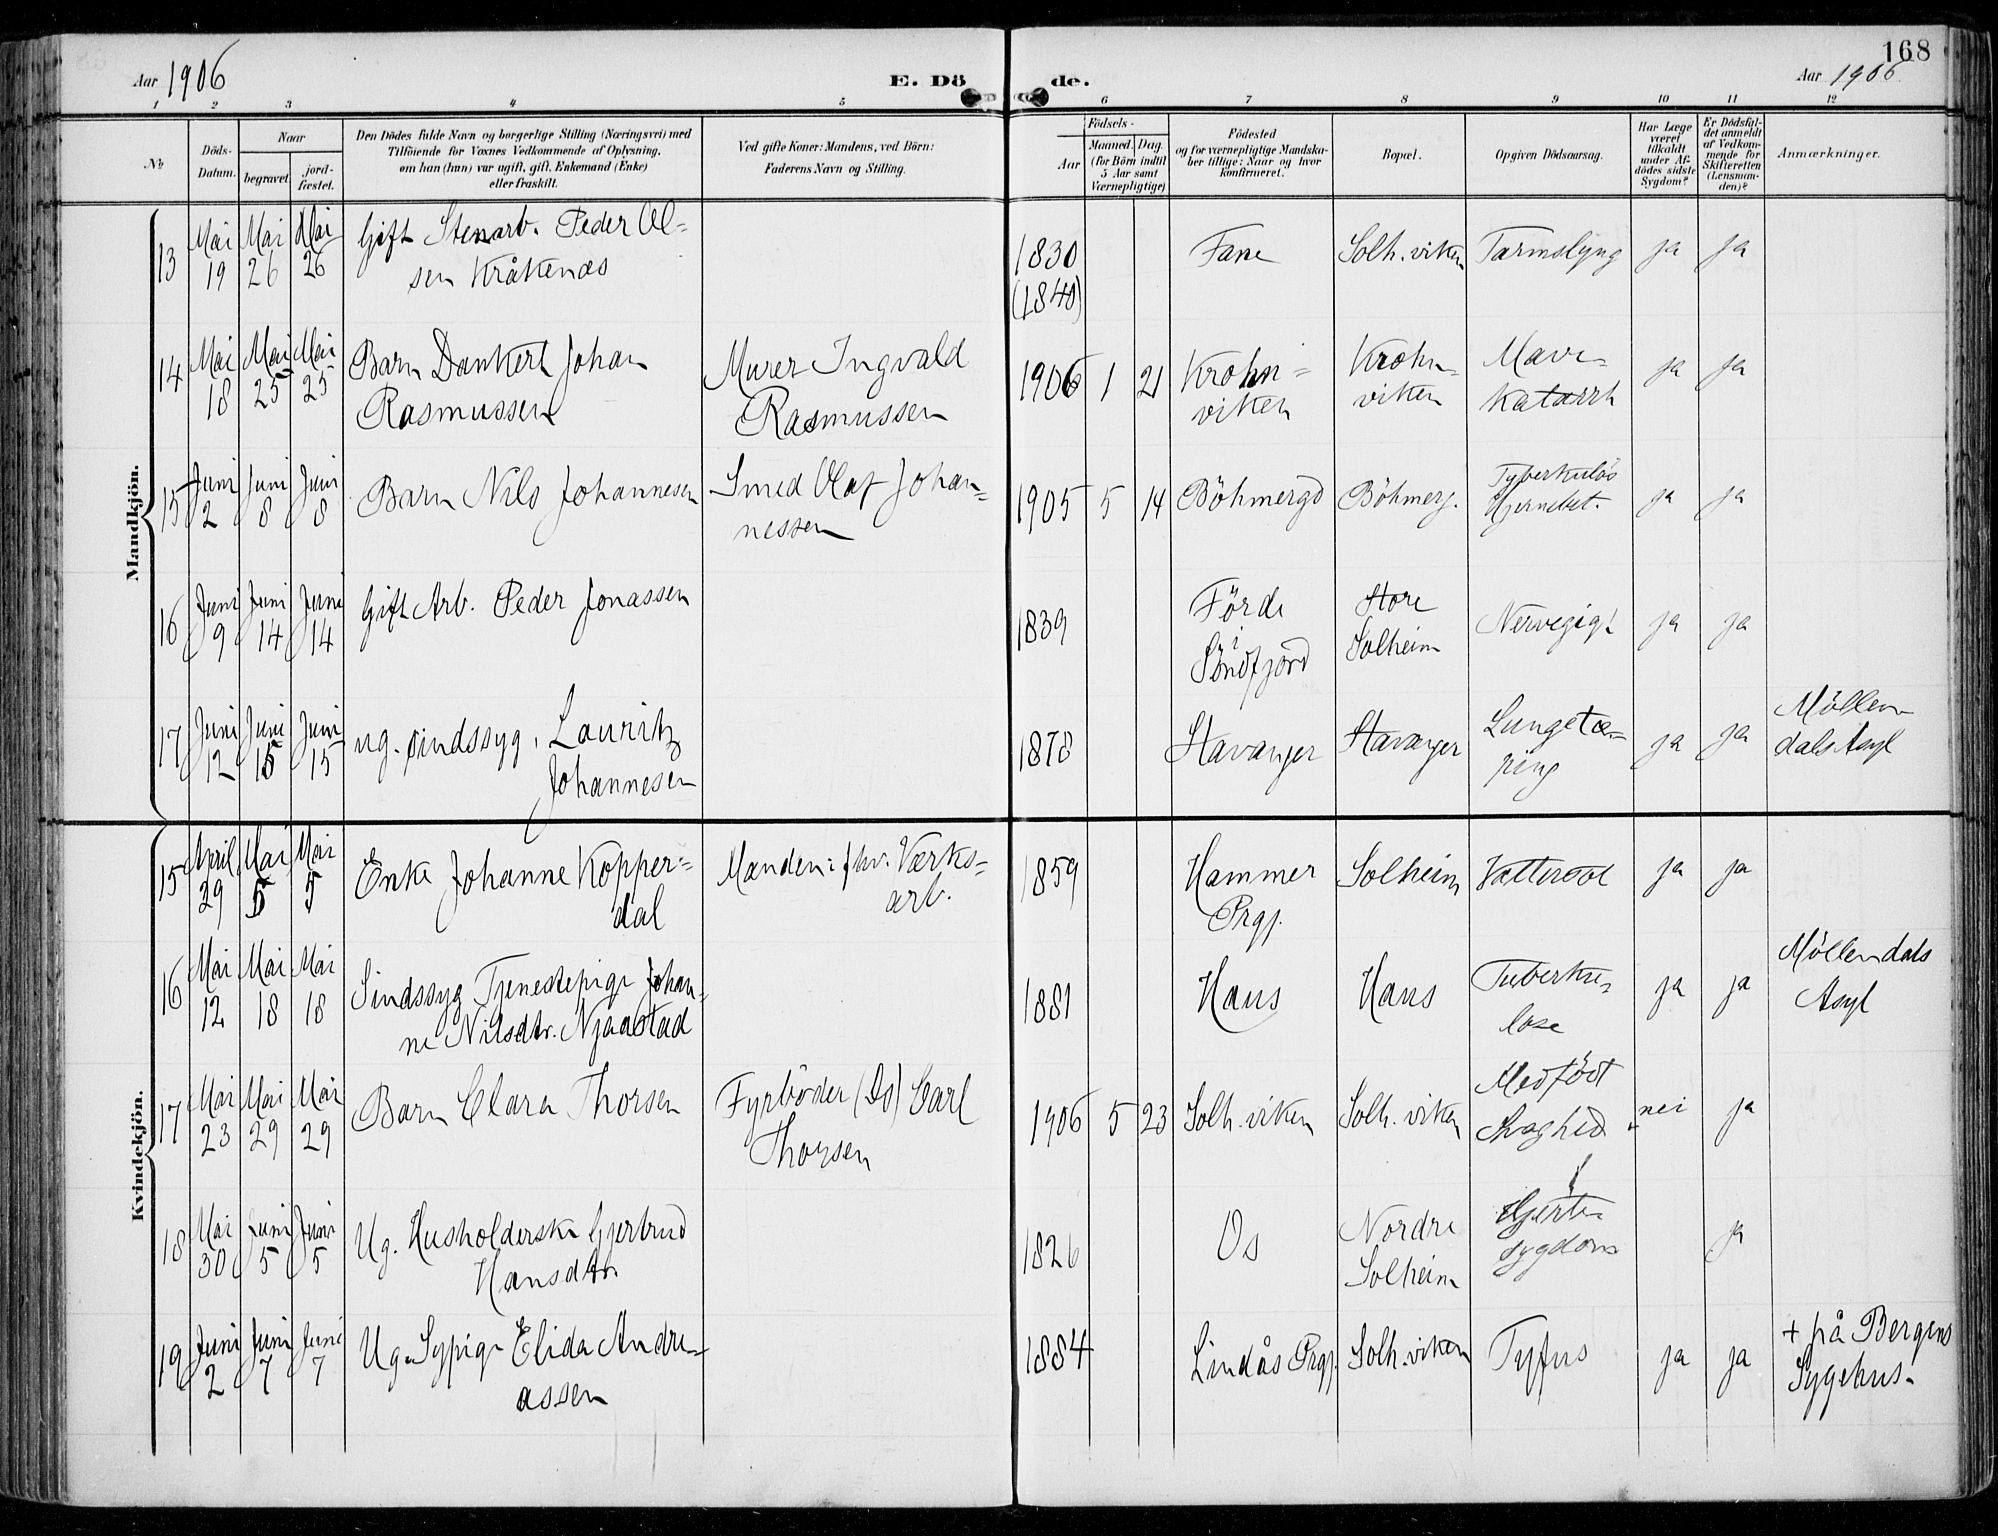 168
Aar 1906
E. Döde.
Aar 1906
1 2 3 4 5 6 7 8 9 10 11 12
No
Döds-Datum.
Naar
begravet.
jord-fæstet.
Den Dödes fulde Navn og borgerlige Stilling (Næringsvei) med
Tilföiende for Voxnes Vedkommende af Oplysning,
om han (hun) var ugift, gift, Enkemand (Enke)
eller fraskilt.
Ved gifte Koner: Mandens, ved Börn:
Faderens Navn og Stilling.
Födsels-
Aar
Maaned. Dag.
(for Börn indtil
5 Aar samt
Værnepligtige)
Födested
og for værnepligtige Mandska-
ber tillige: Naar og hvor
konfirmeret.
Bopæl.
Opgiven Dödsaarsag.
Har Læge
været
tilkaldt
under Af-
dödes sidste
Sygdom?
Er Dödsfal-
det anmeldt
af Vedkom-
mende for
Skifteretten
(Lensman-
den)?
Anmærkninger.
Mandkjön.
13 Mai 19 Mai 26 Mai 26 Gift Stenarb. Peder Ol=
sen Kråkenæs
1830 (1840) Fane Solh.viken Tarmslyng ja ja
14 Mai 18 Mai 25 Mai 25 Barn Dankert Johan
Rasmussen
Murer Ingvald
Rasmussen
1906 1 21 Krohn=
viken
Krohn=
viken
Mave=
katarrh
ja ja
15 Juni 2 Juni 8 Juni 8 Barn Nils Johannesen
Smed Olaf Johan=
nessen
1905 5 14 Böhmergd Böhmerg. Tyberkulös
Hjernebet.
ja ja
16 Juni 9 Juni 14 Juni 14 Gift Arb. Peder Jonassen
1839 Förde
i
Söndfjord
Store
Solheim
Nervegigt ja ja
17 Juni 12 Juni 15 Juni 15 ug. sindssyg, Lauritz
Johannesen
1878 Stavanger Stavanger Lungetæ=
ring
ja ja Möllen
dals Asyl
Kvindekjön.
15 April 29 Mai 5 Mai 5 Enke Johanne Kopper=
dal
Manden: fhv. Værks=
arb.
1859 Hammer
Prgj.
Solheim Vattersot ja ja
16 Mai 12 Mai 18 Mai 18 Sindssyg Tjenestepige Johan=
ne Nilsdtr. Njaastad
1881 Haus Haus Tuberku=
lose
ja ja Möllendals
Asyl
17 Mai 23 Mai 29 Mai 29 Barn Clara Thorsen
Fyrböder (Ds) Carl
Thorsen
1906 5 23 Solh.viken Solh.viken Medfödt
Svaghed
nei ja
18 Mai 30 Juni 5 Juni 5 Ug. Husholderske Gjertrud
Hansdtr.
1826 Os Nordre
Solheim
Hjerte=
sygdom
ja
19 Juni 2 Juni 7 Juni 7 Ug. Sypige Elida Andre=
assen
1884 Lindås Prgj. Solh.viken Tyfus ja ja + på Bergens
Sygehus.